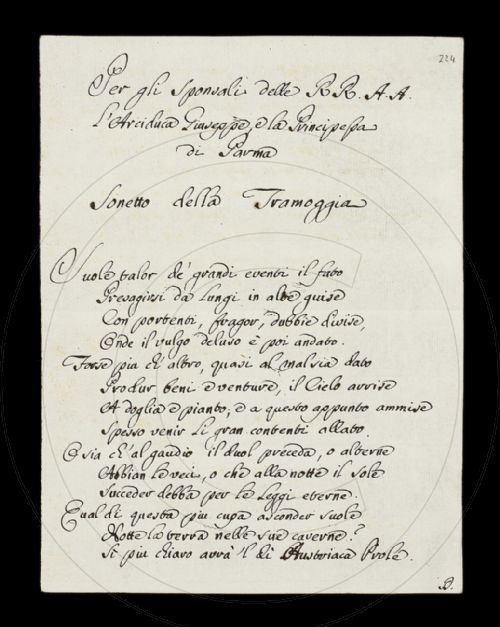 224
Per gli Sponsali delle RR. A.A.
L'Arciduca Giuseppe, e la Principessa
di Parma
Sonetto della Tramoggia
Suole talor de' grandi eventi il fato
Presagirsi da lungi in altre guise
Con portenti, fragor, dubbie divise,
Onde il vulgo deluso è poi andato.
Forse più ch'altro, quasi al mal sia dato
Produr beni e venture, il Cielo arrise
A doglia e pianto, e a questo appunto ammise
Spesso venir li gran contenti allato.
O sia ch'al gaudio il duol preceda, o alterne
Abbian le veci, o che alla notte il sole
Succeder debba per le leggi eterne.
Qual di questa più cupa asconder suole
Notte la terra nelle sue caverne?
Sì più chiaro avrà 'l dì Austriaca Prole.
B.